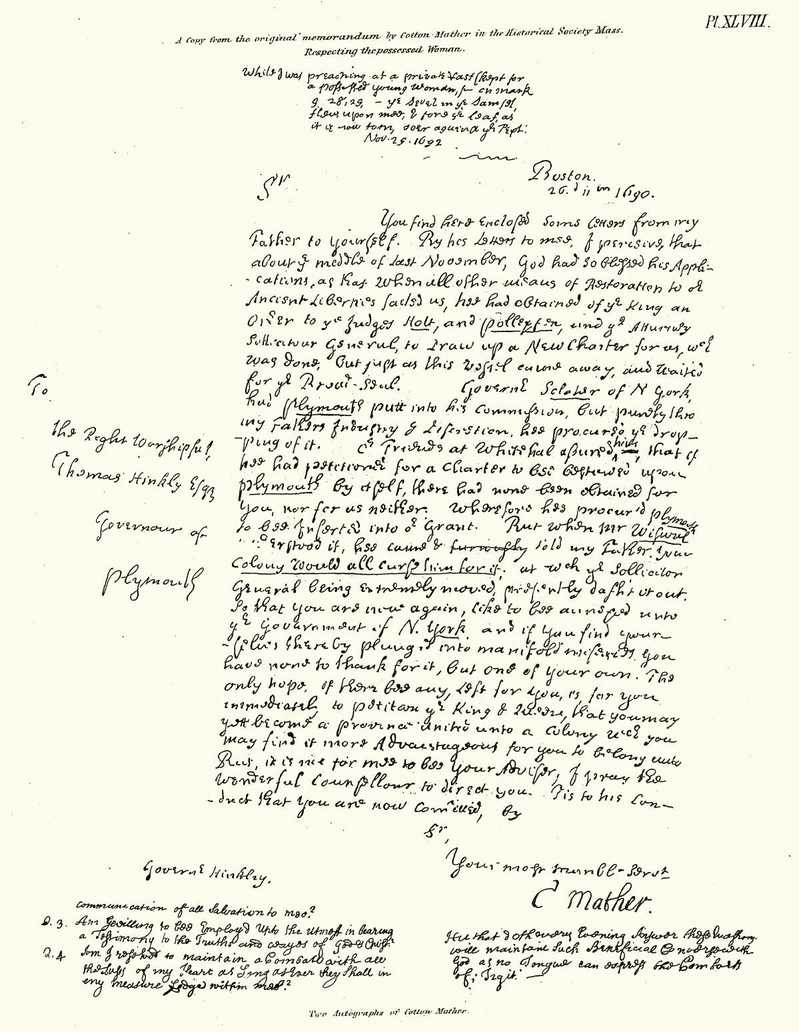 Pl. XLVIII.
A Copy from the original memorandum by Cotton Mather in the Historical Society Mass.
Respecting the possessed Woman.
While I was preaching at a private Fast (kept for
a possessed young Woman,) on Mark
9. 28, 29. – ye Devel in ye Damsel,
flew upon mee, & tore ye Leaf, as
it is now torn, over against ye Text.
Nov. 29. 1692
Boston.
26.d 11m 1690.
Sr
You find here Enclosed some Letters from my
Father to yourself. By his Letters to mee, I perceive, that
about ye middle of Last November, God had so blessed his Appli-
-cations, as that when all other means of Restoration to or
Ancient Liberties failed us, hee had obtained of ye King an
Order to ye Judges Holt, and Pollexfen, and ye Atturney
Sollicitour General, to Draw up a New Charter for us, wch
was done, but just as this Vessel came away, and waited
for ye Broad-Seal. Governr Sloter of N York,
had Plymouth putt into his commission, but purely thro
my Fathers Industry & Discretion, hee procured ye drop-
-ping of it. or Friends at Whitehal assured him, that if
hee had petitioned for a Charter to bee bestowed upon
Plymouth by itself, there had none been obtained for
you, nor for us neither. Wherefore hee procur'd Plymouth
to bee Inserted into or Grant. But when Mr Wiswal
understood it, hee came & told my Father, your
Colony would all curse him for it, at wch ye Sollicitor
General being Extremely moved, presently dash't it out.
So that you are now again, like to bee annexed unto
ye Government of N. York. and if you find your
-selves thereby plung'd into manifold miseries, you
have none to thank for it, but one of your own. The
only hope, if there bee any, Left for you, is for you
immediately to petition ye King & Queen, that you may
yett become a province united unto a Colony wch you
may find it more Advantageous for you to belong unto
But, it is not for mee to bee your Adviser, I pray the
wonderful Counsellour to direct you. Tis to his Con-
-duct that you are now Com̄itted, by
Sr,
Your most humbl- Servt
C Mather.
To
the Right Worshipful,
Thomas Hinkly Esqr
Governour of
Plymouth
Governr Hinkley.
communication of all Salvation to mee?
Q. 3. Am I willing to bee Employ'd Upto the utmost in bearing
a Testimony to the Truths and wayes of God & Christ
Q. 4. Am I resolved to maintain a Combate with all
the Lusts of my Heart as Long as Ever they shall in
any measure Lodge within mee?
Hee that doth every Evening Answer these Questions,
will maintain such Beneficial with
God as no Tongue can express the Comforts
of it.
Two Autographs of Cotton Mather.